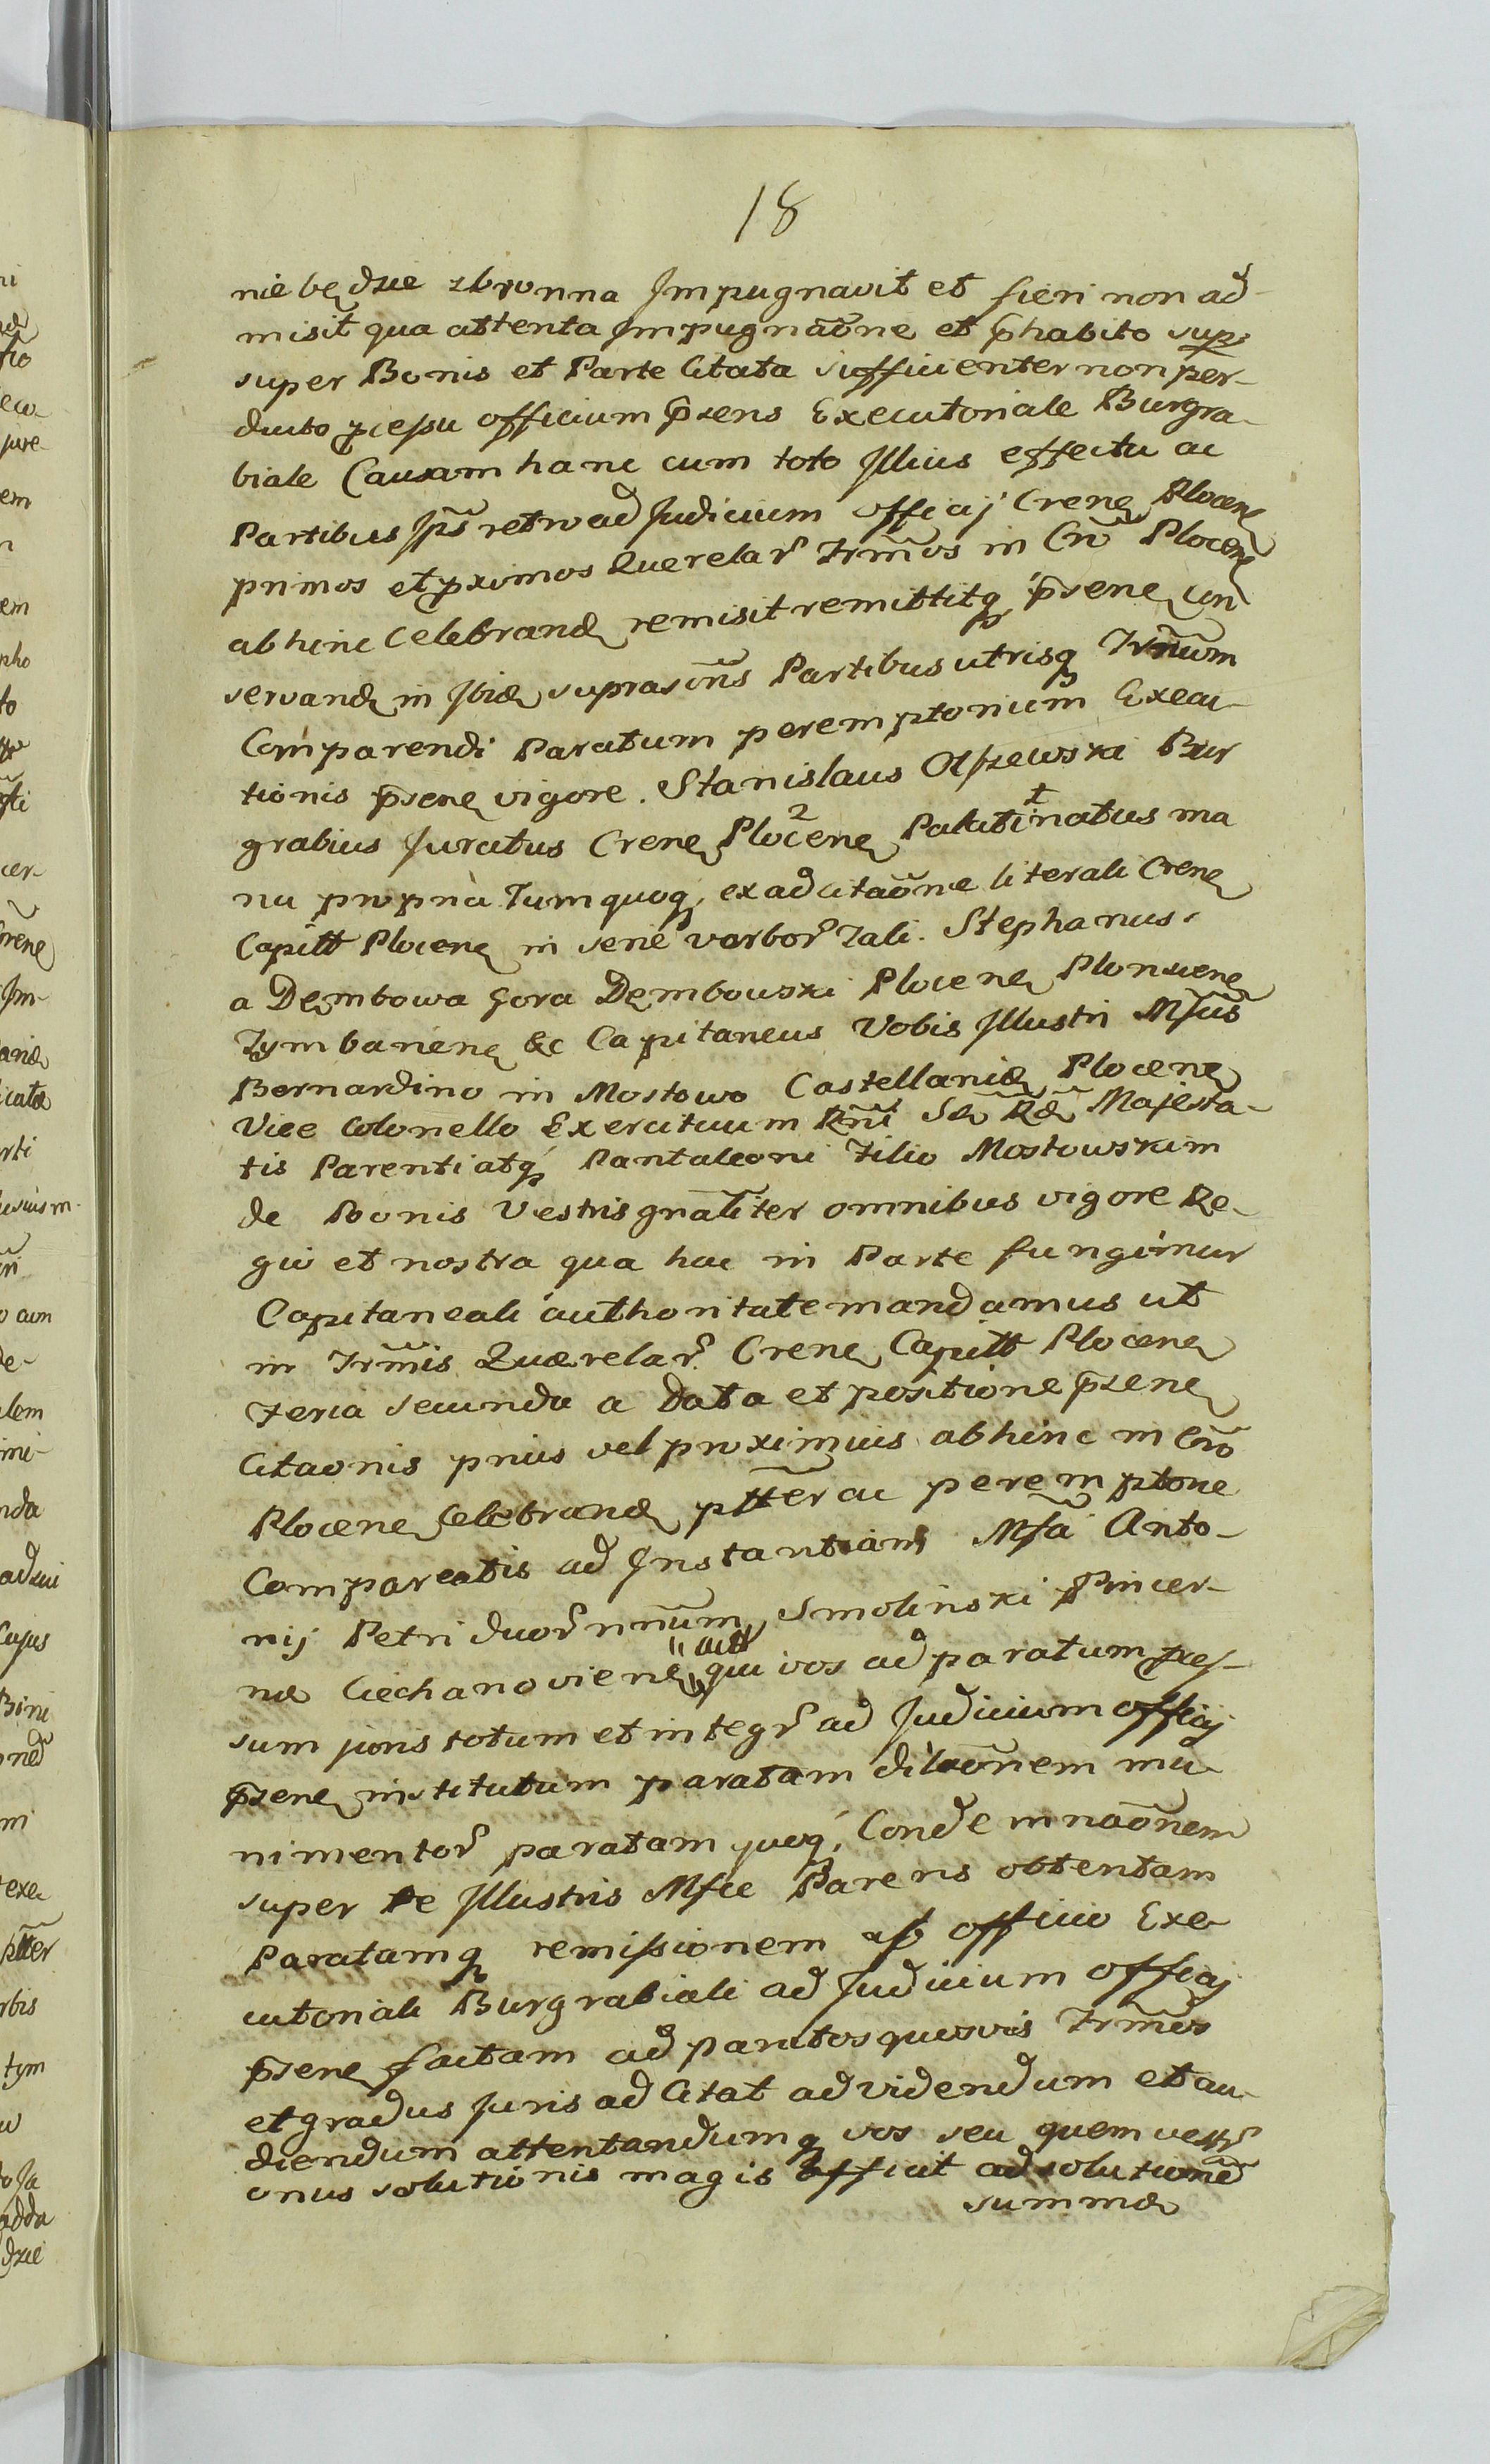 18
nie będzie zbronna Jmpugnavit et fieri non ad-
misit qua attenta Jmpugnaõne et p̃habito sup
super Bonis et Parte Citata sufficienter non per-
ducto pcessu officium p̃sens Executoriale Burgra-
biale Causam hanc cum toto Jllius effectu ac
Partibus Jps̃ retro ad Judicium officij Crenẽ Plocenẽ
primos et pximos Querelar̃ Trm̃os in Crõ Plocenẽ
abhinc celebrandẽ remisit remittitq̃ p̃senẽ con
servandẽ in Jbidẽ suprascñs Partibus utrisq̃ Trm̃um
Comparendi Paratum peremptorium Execu-
tionis p̃senẽ vigore. Stanislaus Olszewski Bur
grabius Juratus Crenẽ Plocenẽ Palatinatus ma
nu propria Tum quoq̃, ex adcitaõne literali Crenẽ
Capitt Plocenẽ in serie verbor̃ Tali. Stephanus
a Dęmbowa Gora Dęmbowski Plocenẽ Plonscenẽ
Tymbarienẽ &c Capitaneus Vobis Jllustri Mfcus̃
Bernardino in Mostowo Castellanidẽ Plocenẽ
Vice Colonello Exercituum Rñi Sæ Rẽ Majesta-
tis Parenti atq̃ Pantaleoni Filio Mostowskim
de Bonis Vestris gnãliter omnibus vigore Re-
gio et nostra qua hac in Parte fungimur
Capitaneali authoritate mandamus ut
in Trm̃is Quærelar̃ Crenẽ Capitt Plocenẽ
Feria secunda a Data et positione p̃senẽ
Citaonis prius vel proximius abhinc in Crõ
Plocenẽ celebrandẽ ptter̃ ac peremptorie
Compareatis ad Jnstantiam Mfci Anto-
nij Petri duor̃ nñum Smolinski Pincer-
næ Ciechanovienẽ, qui vos ad paratum pces-
act
sum juris totum et integr̃ ad Judicium officij
p̃senẽ institutum paratam dilaõnem mu-
nimentor̃ paratam quoq̃, Condemnaõnem
super te Jllustris Mfce Parens obtentam
Paratamq̃ remissionem ab officio Exe-
cutoriali Burgrabiali ad Judicium officij
p̃senẽ factam ad paratos quosvis Trm̃os
et gradus Juris ad Citat ad videndum et au-
diendum attentandumq̃ vos seu quem vestr̃
onus solutionis magis afficit ad solutionẽ
summæ